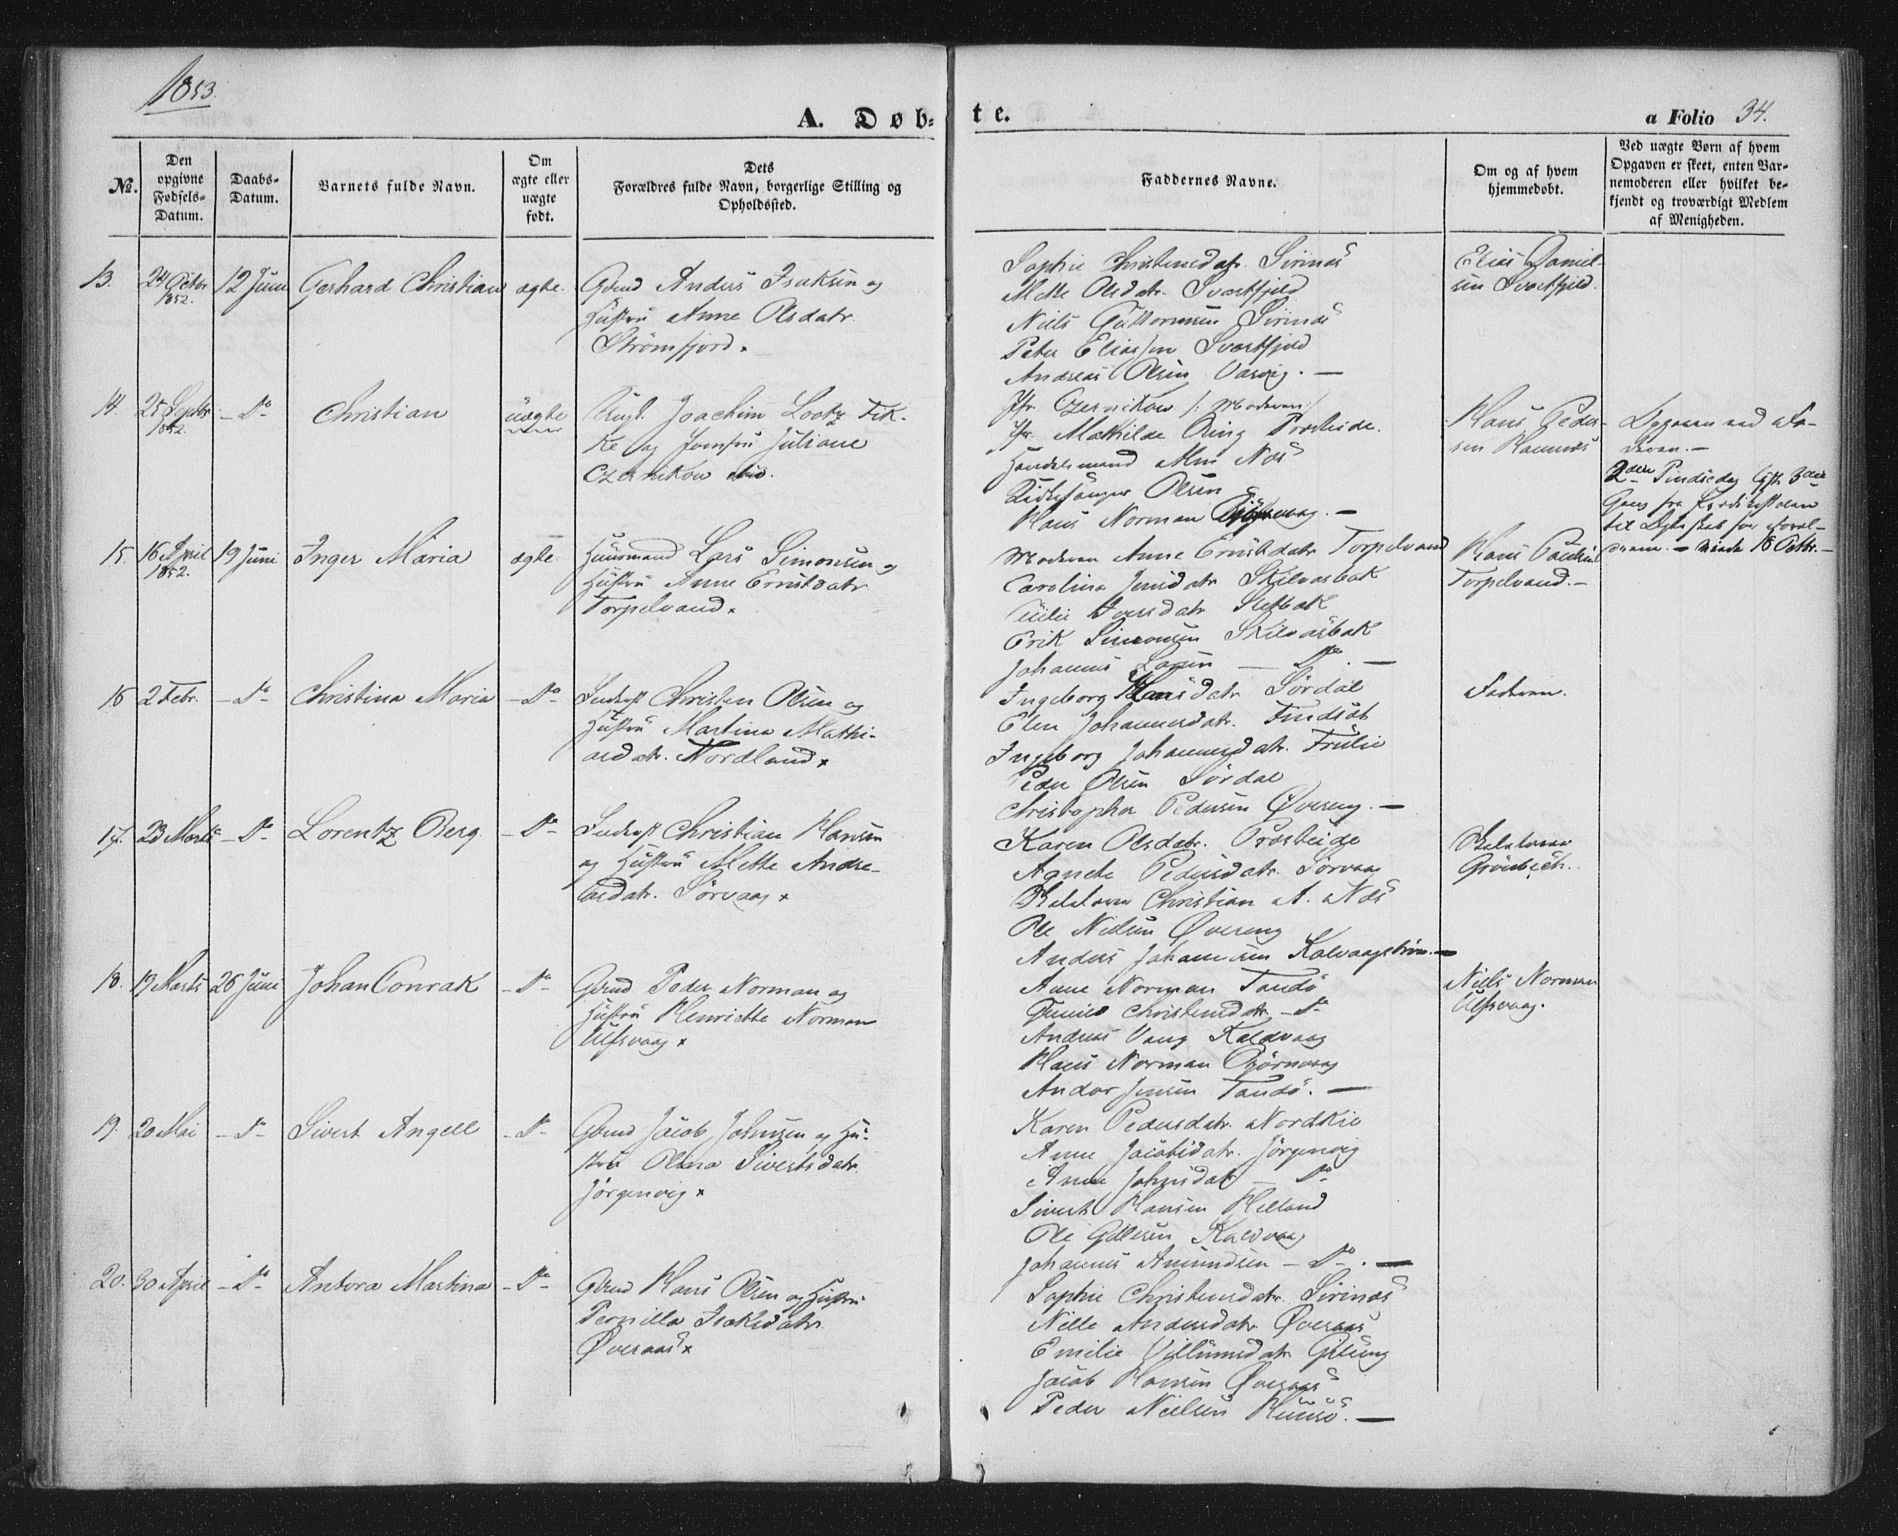 1853.
A. Døb-
te.
a Folio 34.
No.
Den opgivne Fødsels-Datum.
Daabs-Datum.
Barnets fulde Navn.
Om ægte eller uægte født.
Dets Forældres fulde Navn, borgerlige Stilling og Opholdssted.
Faddernes Navne.
Om og af hvem hjemmedøbt.
Ved uægte Børn af hvem Opgaven er skeet, enten Barnemoderen eller hvilket bekjendt og troværdigt Medlem af Menigheden.
13. 24 Octbr 1852. 12 Juni Gerhard Christian ægte.
Gbmd Anders Isaksen og
Hustru Anne Olsdatr
Strømfjord.
Sophie Christensdatr. Sirinæs
Mette Olsdatr. Svartfjeld
Niels Guttormsen Sirinæs
Peter Eliassen Svartfjeld
Andreas Olsen Vasvig. —
Elias Daniel-
sen Svartfjeld.
14. 25 Septbr 1852. — Do Christian uægte
Ungk. Joachim Lootz Fik-
ke og Jomfru Juliane
Czernikow
Jfr. Czernikow /: Moderen:/
Jfr. Mathilde Ring Presteide.
Handelsmand Næs
Kirkesanger Olsen
Hans Norman —
Hans Peder-
sen
2den Pindsedag
15. 16 April 1852. 19 Juni Inger Maria ægte.
Huusmand Lars Simonsen og
Hustru Anne Ernstdatr
Torpelvand
Moderen Anne Ernstdatr Torpelvand
Carolina Jensdatr Skilvasbak
Iversdatr Sletbak
Erik Simonsen Skilvasbak
Johannes Larsen — Do. —
Hans Paulsen
Torpelvand. —
16 2 Febr. — Do Christina Maria — Do
Inderst Christen Olsen og
Hustru Martina Mathi-
asdatr. Nordland
Ingeborg Hansdatr Sørdal
Elen Johannesdatr.
Ingeborg Johannesdatr.
Peder Olsen Sørdal
Christopher Pedersen Øvereng. —
Faderen.
17. 23 Marts — Do Lorentz Berg — Do
Inderst Christian Hansen
og Hustru Mette Andre-
asdatr. Sørvaag
Karen Olsdatr. Presteide
Agnete Pedersdatr. Sørvaag
Christian A. Næs
Ole Nielsen Øvereng
Anders Johannesen —
Grönbech.
18. 19 Marts 26 Juni Johan Conrak — Do
Gbmd Peder Norman og
Hustru Henriette Norman
Ulfsvaag
Anne Norman Tandø
Christensdatr — Do
Andreas Vang Kaldvaag
Hans Norman Bjørnvaag
Andor Jensen Tandø. —
Niels Norman
Ulfsvaag.
19. 20 Mai — Do Sivert Angell — Do
Gbmd Jacob Johnsen og Hu-
stru Olina Sivertsdatr
Jørgenvig
Karen Pedersdatr. Nordkie
Anne Jacobsdatr. Jørgenvig
Anne Johnsdatr — Do
Sivert Hansen Helland
Ole Kaldvaag
Johannes Amundsen — Do. —
20. 30 April — Do Antora Martina — Do
Gbmd Hans Olsen og Hustru
Pernilla Isaksdatr
Øveraas
Sophie Christensdatr Sirinæs
Nille Andersdatr Øveraas
Emilie Villumsdatr
Jacob Hansen Øveraas
Peder Nielsen —